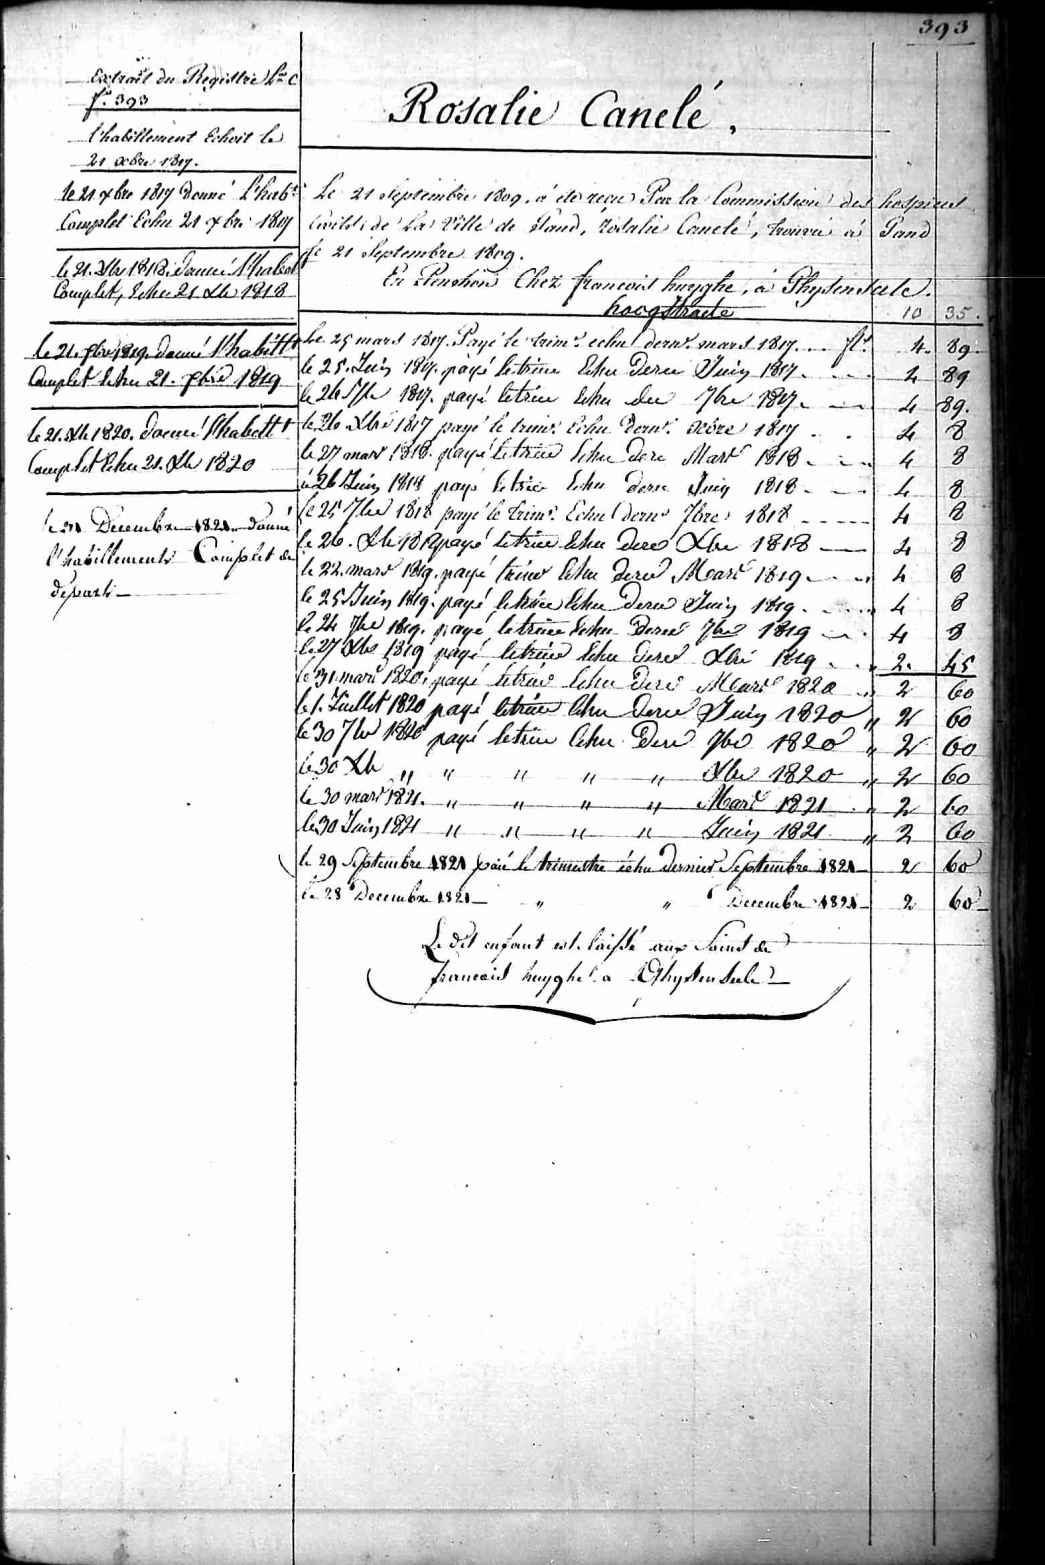 393
Extrait du Registre L.re C
f.o 393
l'habillement Echoit le
21 xbre 1817.
le 21 xbre 1817 donné L'hab.t
Complet Echu 21 xbre 1817
le 21. Xbr 1818. donné l'habet
Complet, Echu 21 Xb 1818
le 21. xbre 1819. donné l'habitt
Complet Echu 21. xbre 1819
le 21. Xb 1820. donné l'habitt
Complet Echu 21. Xb 1820
le 21 Decembre 1821 donné
l'habillements Complet de
départ
Rosalie Canelé.
Le 21 Septembre 1809. a été recu Par la Commission des hospices
Civils de La Ville de Gand, Rosalie Canelé, trouvée à Gand
le 21 Septembre 1809.
En Pension Chez francois huyghe, à Ghysenseele.
hoogstraete 10 35.
Le 25 mars 1817. Payé le trim.e echu dern.r mars 1817. . . fl.s 4. 89.
le 25. Juin 1817. payé letrim Echu dere Juin 1817. . . . 4 89
le 26 7br 1817. payé letrim Echu der 7bre 1817. 4 89.
le 26 Xbre 1817 payé le trim.e Echu dern.r xbre 1817 . . 4 8
le 27 mars 1818. payé letrim Echu dere Mars 1818. 4 8
le 26 Juin 1818 payé letrim Echu dere Juin 1818 4 8
le 25 7bre 1818 payé le trim.e Echu dern.r 7bre 1818 4 8
le 26. Xb 1818 payé letrim Echu dere Xbre 1818 4 8
le 22. mars 1819. payé trim Echu dere Mars 1819. 4 8
le 25 Juin 1819. payé letrim Echu dere Juin 1819. 4 8
le 24 7bre 1819. payé letrim Echu dere 7bre 1819 4 8
le 27 Xbr 1819 payé letrim Echu dere Xbre 1819 . . " 2. 45
le 31 mars 1820. payé letrim Echu dere Mars 1820 " 2 60
le 1. Juillet 1820 payé letrim Echu dere Juin 1820 " 2 60
le 30 7br 1820 payé letrim Echu dere 7bre 1820 " 2 60
le 30 Xb " " " " " Xbre 1820 " 2 60
le 30 mars 1821. " " " " Mars 1821 . " 2 60
le 30 Juin 1821 " " " " Juin 1821 " 2 60
le 29 Septembre 1821 païé le trimestre échu dernier Septembre 1821 2 60
le 28 Decembre 1821 " " Decembre 1821 2 60
Le dit enfant est laissé aux Soins de
francois huyghe a Ghysenseele